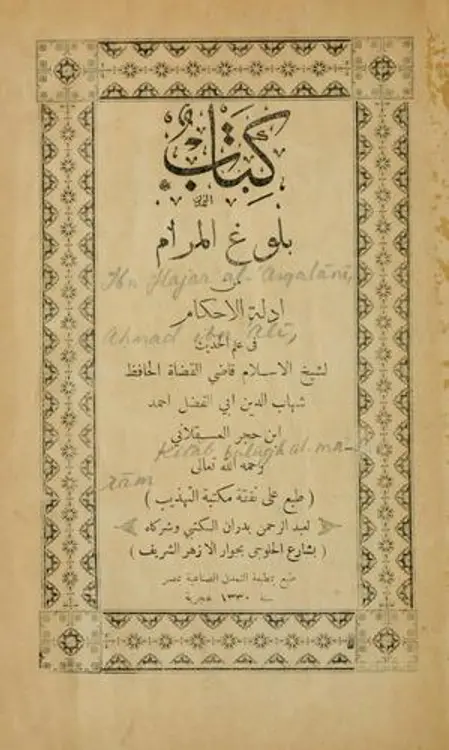 كتاب
بلوغ المرام
Ibn Hajar al-'Asqalānī,
من
ادلة الاحكام
Ahmad ibn 'Alī,
في علم الحديث
لشيخ الاسلام قاضي القضاة الحافظ
شهاب الدين ابي الفضل احمد
ابن حجر العسقلاني
Kitāb bulūgh al-ma-
رحمه الله تعالى
rām
( طبع على نفقة مكتبة التهذيب )
لعبد الرحمن بدران الكتبي وشركاه
( بشارع الحلوجي بجوار الازهر الشريف )
طبع بمطبعة التمدن الصناعية بمصر
سنة ١٣٣٠ هجرية